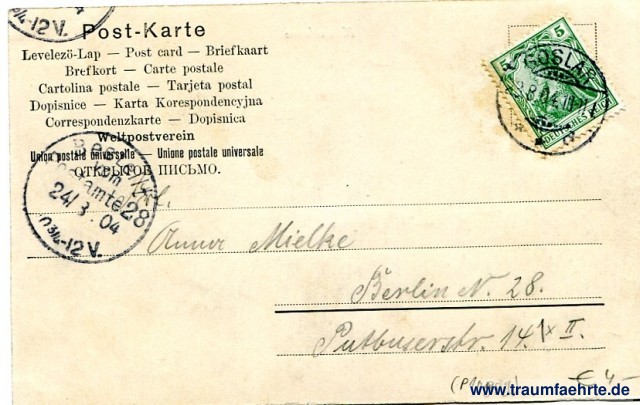 4-12V.
Post-Karte
Levelezö-Lap — Post card — Briefkaart
Brefkort — Carte postale
Cartolina postale — Tarjeta postal
Dopisnice — Karta Korespondencyjna
Correspondenzkarte — Dopisnica
Weltpostverein
Union postale universelle — Unione postale universale
ОТКРЫТОЕ ПИСЬМО.
5
DEUTSCHES REICH
GOSLAR
Bestellt
vom
Postamte 28
24/8.04
12V.
Frl.
Anna Mielke
Berlin N. 28.
Putbuserstr. 14. II.
€ 4,-
www.traumfaehrte.de